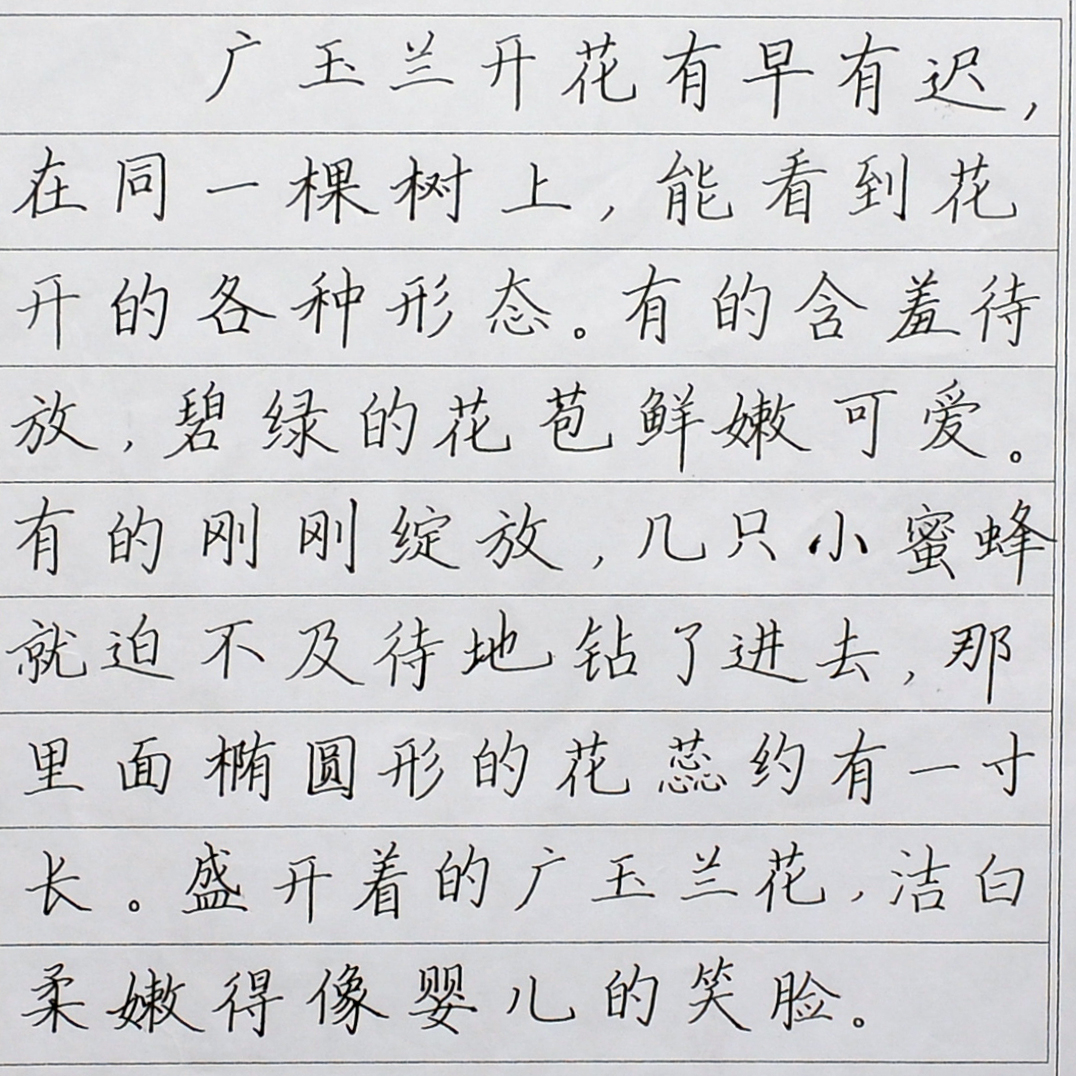 广玉兰开花有早有迟，
在同一棵树上，能看到花
开的各种形态。有的含羞待
放，碧绿的花苞鲜嫩可爱。
有的刚刚绽放，几只小蜜蜂
就迫不及待地钻了进去，那
里面椭圆形的花蕊约有一寸
长。盛开着的广玉兰花，洁白
柔嫩得像婴儿的笑脸。